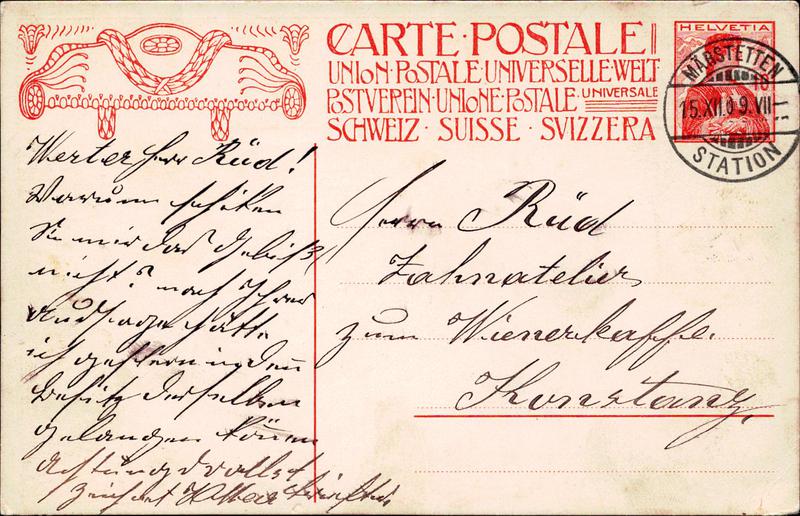 CARTE·POSTALE
UNION·POSTALE·UNIVERSELLE·WELT
POSTVEREIN·UNIONE·POSTALE UNIVERSALE
SCHWEIZ·SUISSE·SVIZZERA
HELVETIA
10
MÄRSTETTEN
15.XII.09.VII
STATION
Werter Herr Rüd!
Warum schiken
Sie mir das Gebiß
nicht? nach Ihrer
Aussage hätte
ich gestern in den
Besitz desselben
gelangen können
Achtungsvollst
zeichnet
Herrn Rüd
Zahnatelier
zum Wienerkaffe.
Konstanz